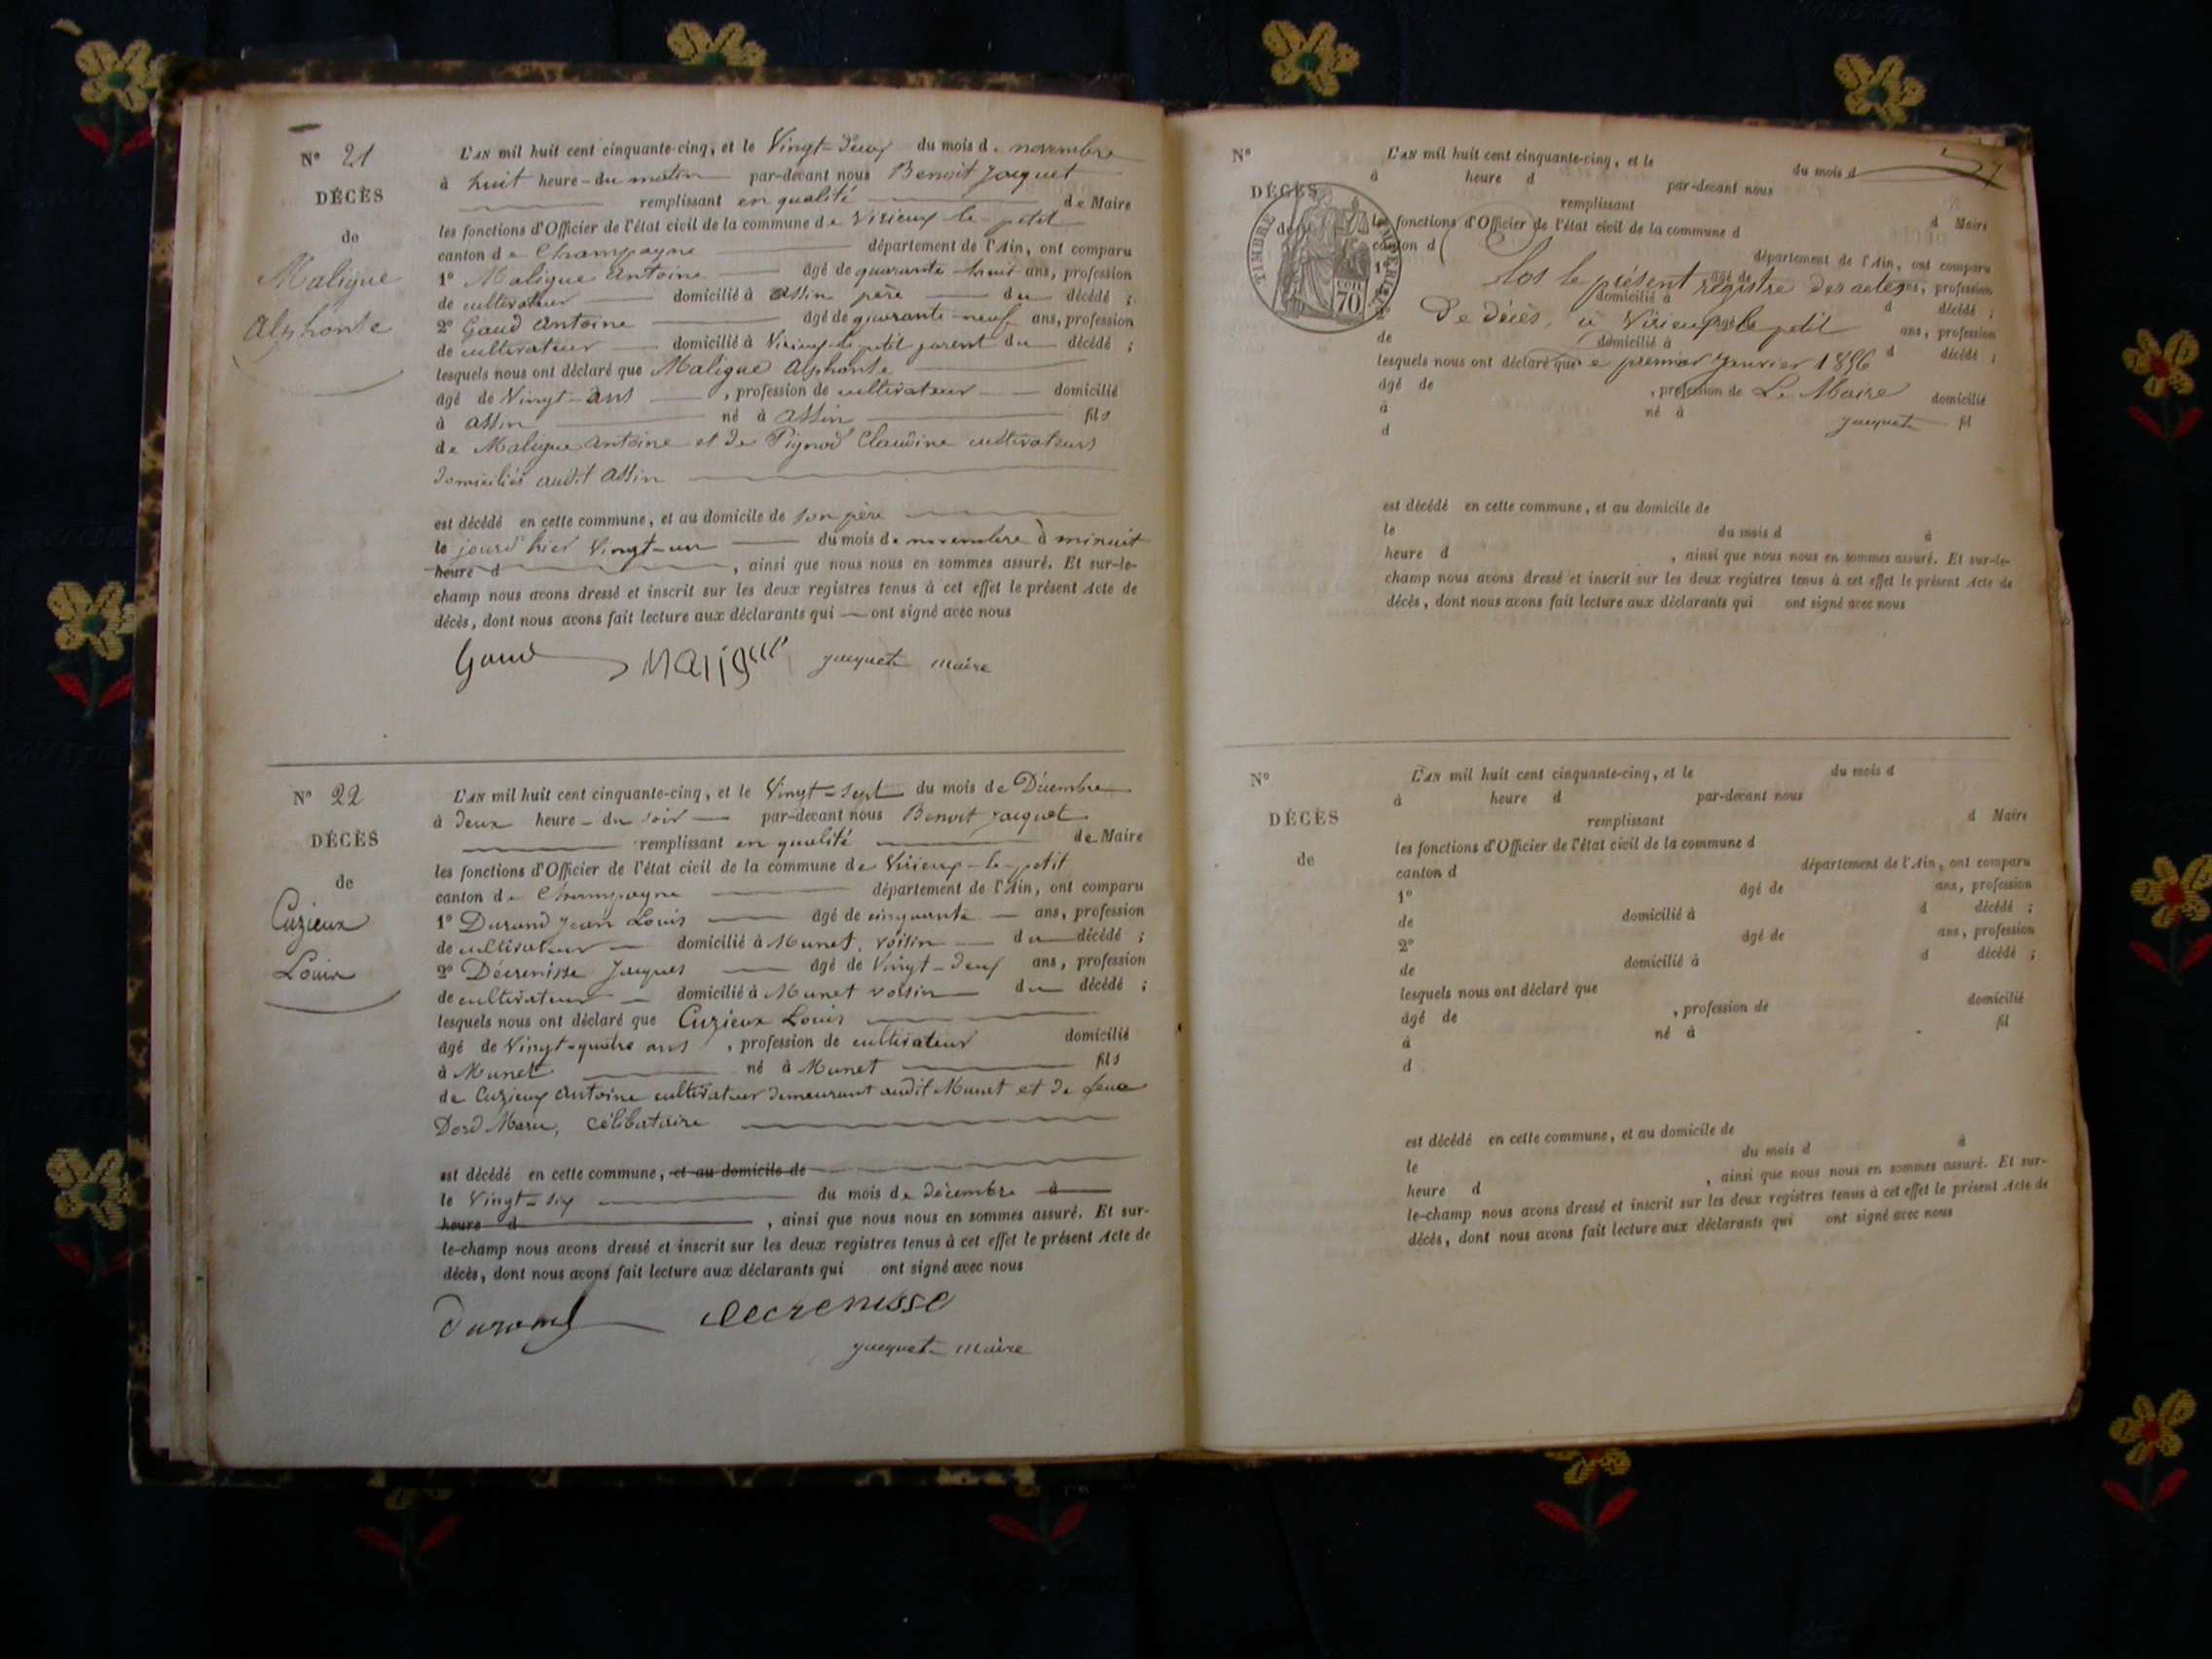 N° 21
DÉCÈS
de
Maligue
Alphonse
L'AN mil huit cent cinquante-cinq, et le Vingt-deux du mois de novembre
à huit heure - du matin par-devant nous Benoit Jacquet
remplissant en qualité de Maire
les fonctions d'Officier de l'état civil de la commune de Virieux le petit
canton de Champagne département de l'Ain, ont comparu
1° Maligue Antoine âgé de quarante huit ans, profession
de cultivateur domicilié à Assin père du décédé ;
2° Gaud Antoine âgé de quarante-neuf ans, profession
de cultivateur domicilié à Virieux-le-petit parent du décédé ;
lesquels nous ont déclaré que Maligue Alphonse
âgé de Vingt-ans , profession de cultivateur domicilié
à Assin né à Assin fils
de Maligue Antoine et de Pignod Claudine cultivateurs
domiciliés audit Assin
est décédé en cette commune, et au domicile de son père
le jourd'hier Vingt-un du mois de novembre à minuit
heure d , ainsi que nous nous en sommes assuré. Et sur-le-
champ nous avons dressé et inscrit sur les deux registres tenus à cet effet le présent Acte de
décès, dont nous avons fait lecture aux déclarants qui ont signé avec nous
Gaud Maligue Jacquet maire
N° 22
DÉCÈS
de
Cuzieux
Louis
L'AN mil huit cent cinquante-cinq, et le Vingt-sept du mois de Décembre
à deux heure - du soir par-devant nous Benoit Jacquet
remplissant en qualité de Maire
les fonctions d'Officier de l'état civil de la commune de Virieux-le-petit
canton de Champagne département de l'Ain, ont comparu
1° Durand Jean Louis âgé de cinquante ans, profession
de cultivateur domicilié à Munet, voisin du décédé ;
2° Décrenisse Jacques âgé de Vingt-deux ans, profession
de cultivateur domicilié à Munet voisin du décédé ;
lesquels nous ont déclaré que Cuzieux Louis
âgé de Vingt-quatre ans , profession de cultivateur domicilié
à Munet né à Munet fils
de Cuzieux Antoine cultivateur demeurant audit Munet et de feue
Dord Marie, célibataire
est décédé en cette commune, et au domicile de
le Vingt-six du mois de décembre à
heure d , ainsi que nous nous en sommes assuré. Et sur-
le-champ nous avons dressé et inscrit sur les deux registres tenus à cet effet le présent Acte de
décès, dont nous avons fait lecture aux déclarants qui ont signé avec nous
Durand Decrenisse
Jacquet maire
N°
DÉCÈS
de
TIMBRE IMPÉRIAL
70
L'AN mil huit cent cinquante-cinq, et le du mois d
à heure d par-devant nous
remplissant d Maire
les fonctions d'Officier de l'état civil de la commune d
canton d département de l'Ain, ont comparu
Clos le présent registre des actes
1° âgé de ans, profession
domicilié à d décédé ;
de décès, à Virieux le petit
2° âgé de ans, profession
de domicilié à d décédé ;
le premier Janvier 1856
lesquels nous ont déclaré que
âgé de , profession de domicilié
Le Maire
à né à fil
Jacquet
d
est décédé en cette commune, et au domicile de
le du mois d à
heure d , ainsi que nous nous en sommes assuré. Et sur-le-
champ nous avons dressé et inscrit sur les deux registres tenus à cet effet le présent Acte de
décès, dont nous avons fait lecture aux déclarants qui ont signé avec nous
N°
DÉCÈS
de
L'AN mil huit cent cinquante-cinq, et le du mois d
à heure d par-devant nous
remplissant d Maire
les fonctions d'Officier de l'état civil de la commune d
canton d département de l'Ain, ont comparu
1° âgé de ans, profession
de domicilié à d décédé ;
2° âgé de ans, profession
de domicilié à d décédé ;
lesquels nous ont déclaré que
âgé de , profession de domicilié
à né à fil
d
est décédé en cette commune, et au domicile de
le du mois d à
heure d , ainsi que nous nous en sommes assuré. Et sur-
le-champ nous avons dressé et inscrit sur les deux registres tenus à cet effet le présent Acte de
décès, dont nous avons fait lecture aux déclarants qui ont signé avec nous